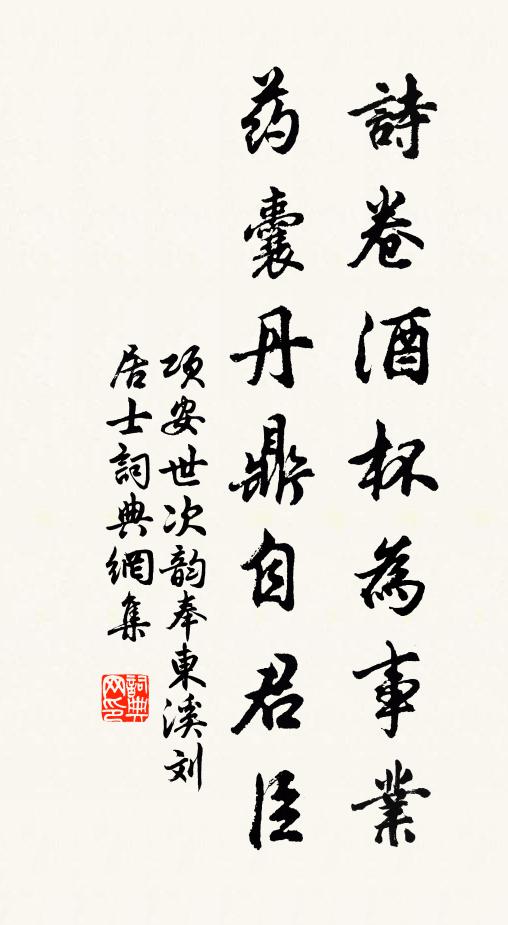 詩卷酒杯為事業
药囊丹鼎自君臣
项安世次韵奉東溪刘
居士詞典網集
詞典
网印